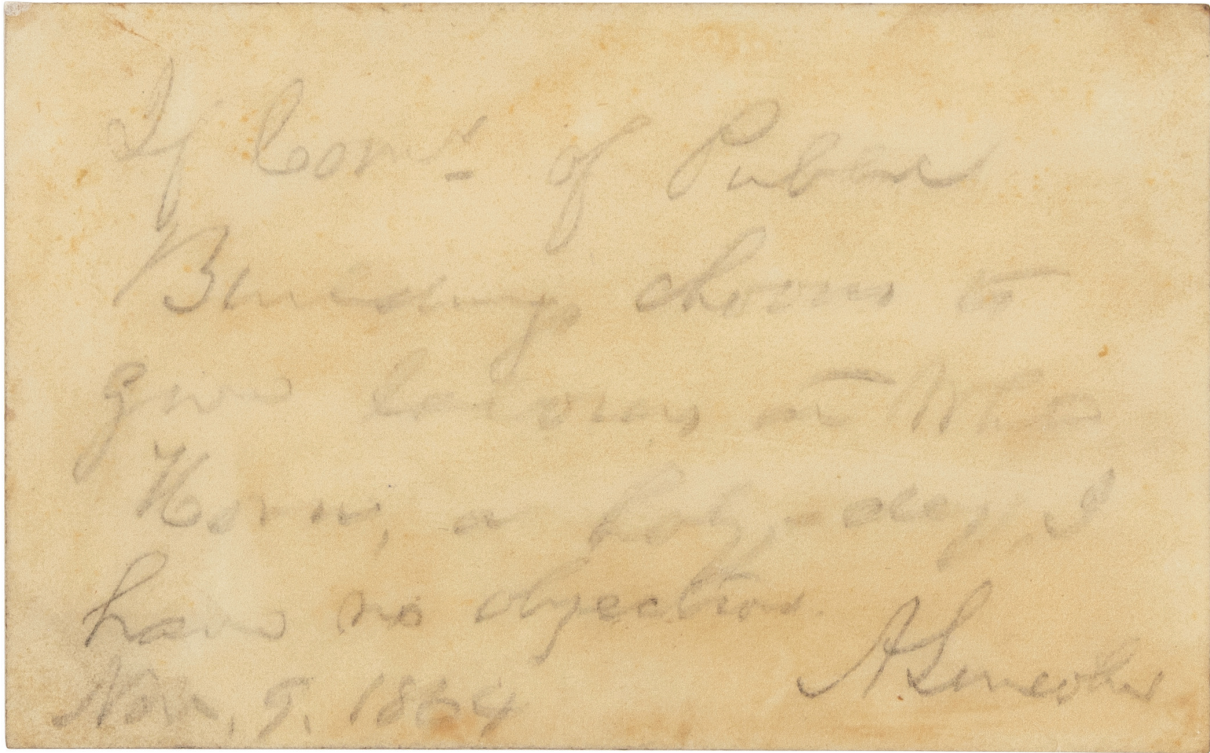 If Comr. of Public
Buildings chooses to
give laborers at White
House, a holy-day, I
have no objection.
A. Lincoln
Nov, 9. 1864